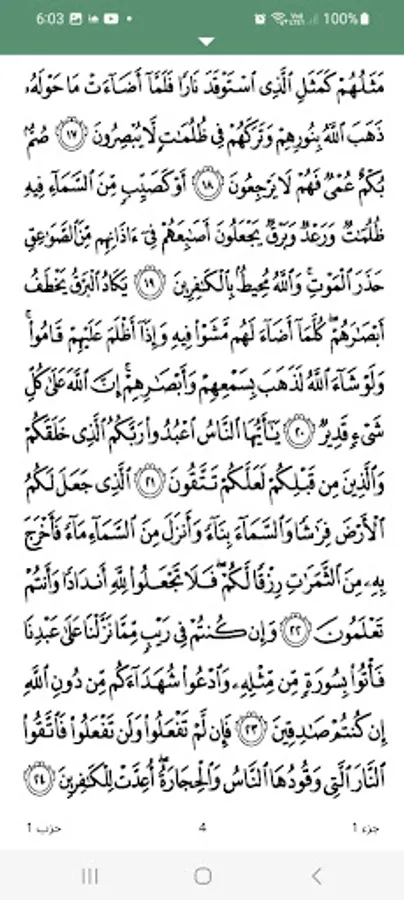 6:03
VoLTE 100%
مَثَلُهُمْ كَمَثَلِ ٱلَّذِى ٱسْتَوْقَدَ نَارًا فَلَمَّآ أَضَآءَتْ مَا حَوْلَهُۥ
ذَهَبَ ٱللَّهُ بِنُورِهِمْ وَتَرَكَهُمْ فِى ظُلُمَـٰتٍ لَّا يُبْصِرُونَ ١٧ صُمٌّۢ
بُكْمٌ عُمْىٌ فَهُمْ لَا يَرْجِعُونَ ١٨ أَوْ كَصَيِّبٍ مِّنَ ٱلسَّمَآءِ فِيهِ
ظُلُمَـٰتٌ وَرَعْدٌ وَبَرْقٌ يَجْعَلُونَ أَصَـٰبِعَهُمْ فِىٓ ءَاذَانِهِم مِّنَ ٱلصَّوَٰعِقِ
حَذَرَ ٱلْمَوْتِ ۚ وَٱللَّهُ مُحِيطٌۢ بِٱلْكَـٰفِرِينَ ١٩ يَكَادُ ٱلْبَرْقُ يَخْطَفُ
أَبْصَـٰرَهُمْ ۖ كُلَّمَآ أَضَآءَ لَهُم مَّشَوْا۟ فِيهِ وَإِذَآ أَظْلَمَ عَلَيْهِمْ قَامُوا۟ ۚ
وَلَوْ شَآءَ ٱللَّهُ لَذَهَبَ بِسَمْعِهِمْ وَأَبْصَـٰرِهِمْ ۚ إِنَّ ٱللَّهَ عَلَىٰ كُلِّ
شَىْءٍ قَدِيرٌ ٢٠ يَـٰٓأَيُّهَا ٱلنَّاسُ ٱعْبُدُوا۟ رَبَّكُمُ ٱلَّذِى خَلَقَكُمْ
وَٱلَّذِينَ مِن قَبْلِكُمْ لَعَلَّكُمْ تَتَّقُونَ ٢١ ٱلَّذِى جَعَلَ لَكُمُ
ٱلْأَرْضَ فِرَٰشًا وَٱلسَّمَآءَ بِنَآءً وَأَنزَلَ مِنَ ٱلسَّمَآءِ مَآءً فَأَخْرَجَ
بِهِۦ مِنَ ٱلثَّمَرَٰتِ رِزْقًا لَّكُمْ ۖ فَلَا تَجْعَلُوا۟ لِلَّهِ أَندَادًا وَأَنتُمْ
تَعْلَمُونَ ٢٢ وَإِن كُنتُمْ فِى رَيْبٍ مِّمَّا نَزَّلْنَا عَلَىٰ عَبْدِنَا
فَأْتُوا۟ بِسُورَةٍ مِّن مِّثْلِهِۦ وَٱدْعُوا۟ شُهَدَآءَكُم مِّن دُونِ ٱللَّهِ
إِن كُنتُمْ صَـٰدِقِينَ ٢٣ فَإِن لَّمْ تَفْعَلُوا۟ وَلَن تَفْعَلُوا۟ فَٱتَّقُوا۟
ٱلنَّارَ ٱلَّتِى وَقُودُهَا ٱلنَّاسُ وَٱلْحِجَارَةُ ۖ أُعِدَّتْ لِلْكَـٰفِرِينَ ٢٤
جزء 1
4
حزب 1